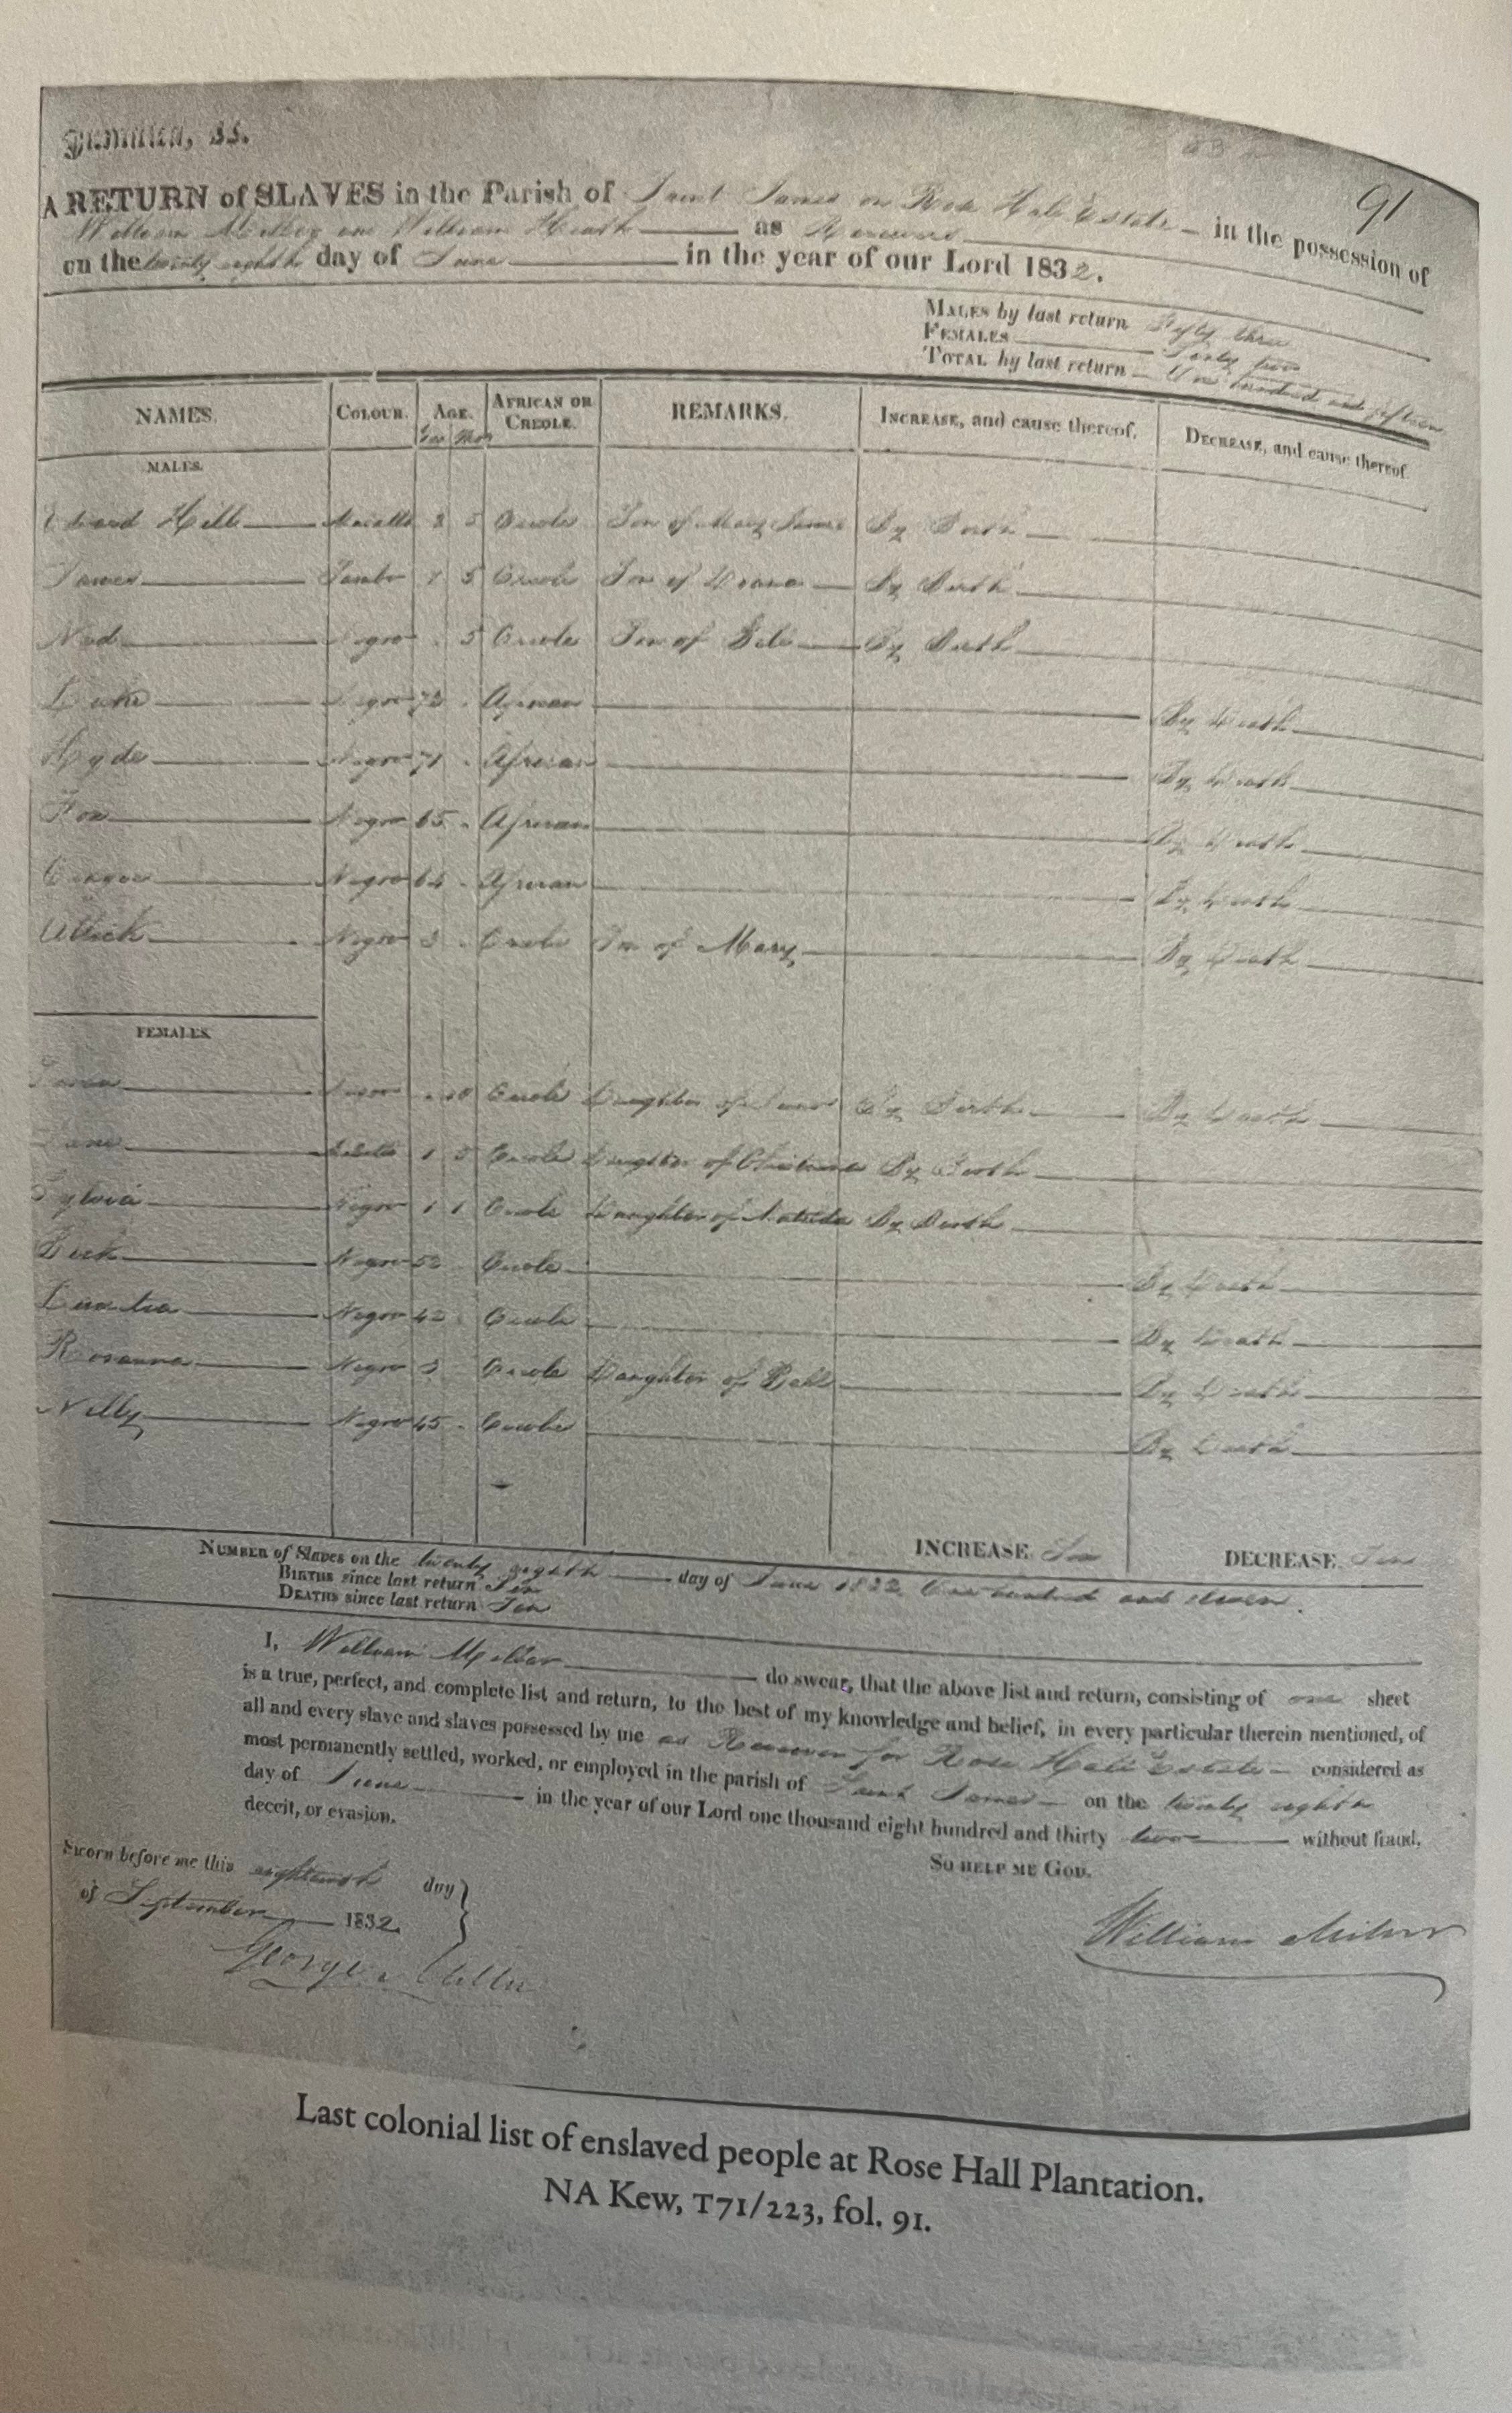 Jamaica, SS.
91
A RETURN of SLAVES in the Parish of Saint James on Rose Hall Estate in the possession of
William as
on the twenty eighth day of June in the year of our Lord 1832.
MALES by last return Fifty three
FEMALES Sixty two
TOTAL by last return One hundred and fifteen
NAMES. COLOUR. AGE. AFRICAN OR CREOLE. REMARKS. INCREASE, and cause thereof. DECREASE, and cause thereof.
MALES.
Edward Hill Mulatto 2 5 Creole Son of Mary James By Birth
James Sambo 5 Creole Son of By Birth
Ned Negro 5 Creole Son of By Birth
Negro African By Death
Hyde Negro 71 African By Death
Fox Negro 65 African By Death
Negro 64 African By Death
Attick Negro 3 Creole Son of Mary By Death
FEMALES.
Creole Daughter of By Birth By Death
1 5 Creole Daughter of By Birth
Sylvia Negro 1 1 Creole Daughter of By Birth
Negro 52 Creole By Death
Negro 42 Creole By Death
Rosanna Negro 3 Creole Daughter of By Death
Nelly Negro 45 Creole By Death
INCREASE DECREASE
NUMBER of Slaves on the twenty eighth day of June 1832 One hundred and eleven.
BIRTHS since last return
DEATHS since last return
I, William do swear, that the above list and return, consisting of one sheet
is a true, perfect, and complete list and return, to the best of my knowledge and belief, in every particular therein mentioned, of
all and every slave and slaves possessed by me as Receiver for Rose Hall Estate considered as
most permanently settled, worked, or employed in the parish of Saint James on the twenty eighth
day of June in the year of our Lord one thousand eight hundred and thirty two without fraud,
deceit, or evasion.
SO HELP ME GOD.
Sworn before me this eighteenth day
of September 1832.
George
William
Last colonial list of enslaved people at Rose Hall Plantation.
NA Kew, T71/223, fol. 91.